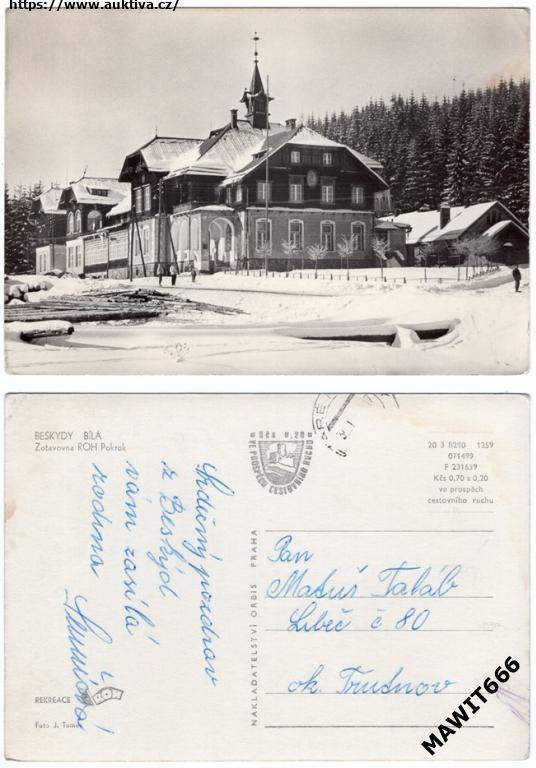 https://www.auktiva.cz/
BESKYDY BÍLÁ
Zotavovna ROH Pokrok
Kčs 0,20
VE PROSPĚCH CESTOVNÍHO RUCHU
20 3 8280 1259
071499
F 231639
Kčs 0,70 a 0,20
ve prospěch
cestovního ruchu
Srdečný pozdrav
z Beskyd
vám zasílá
rodina
Pan
Matuš Taláb
Libeč č 80
ok. Trutnov
NAKLADATELSTVÍ ORBIS PRAHA
REKREACE
ROH
Foto J. Tomek
MAWIT666